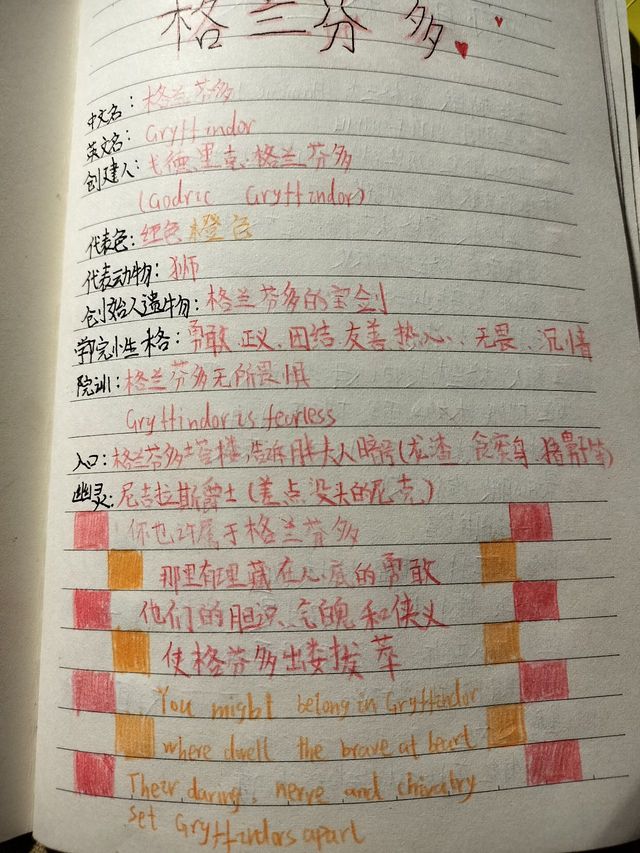 格兰芬多
中文名：格兰芬多
英文名：Gryffindor
创建人：戈德里克·格兰芬多
(Godric Gryffindor)
代表色：红色 橙色
代表动物：狮
创始人遗物：格兰芬多的宝剑
学院性格：勇敢、正义、团结、友善、热心、无畏、沉情
院训：格兰芬多无所畏惧
Gryffindor is fearless
入口：格兰芬多塔楼，告诉胖夫人暗号(龙渣 食蜜鸟 猪鼻子)
幽灵：尼古拉斯爵士(差点没头的尼克)
你也许属于格兰芬多
那里有埋藏在心底的勇敢
他们的胆识、气魄和侠义
使格芬多出娄拔萃
You might belong in Gryffindor
where dwell the brave at heart
Their daring, nerve and chivalry
set Gryffindors apart